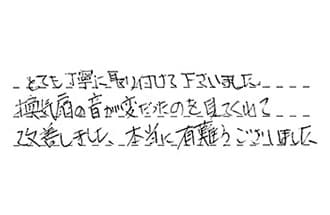 とても丁寧に取り付けて下さいました。
換気扇の音が変だったのを見てくれて
改善しました。本当に有難うございました。